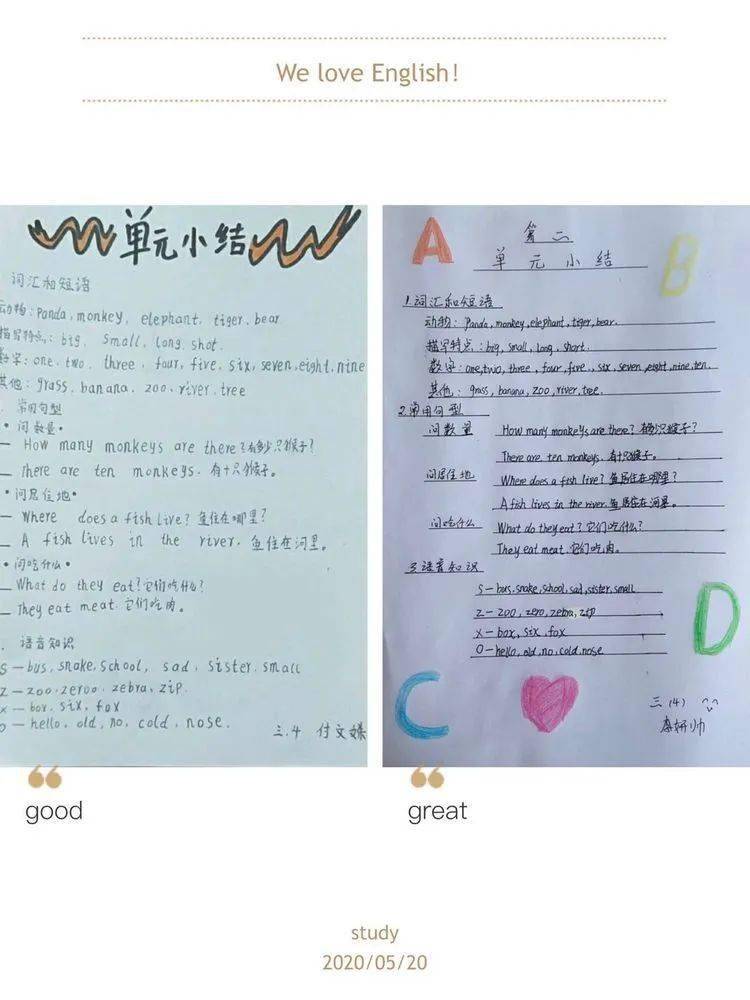 We love English!
单元小结
词汇和短语
动物: Panda, monkey, elephant, tiger, bear
描写特点: big, small, long, shot.
数字: one, two, three, four, five, six, seven, eight, nine
其他: grass, banana, zoo, river, tree
常用句型
•问数量•
— How many monkeys are there? 有多少只猴子?
— There are ten monkeys. 有十只猴子。
•问居住地•
— Where does a fish live? 鱼住在哪里?
— A fish lives in the river. 鱼住在河里。
•问吃什么•
— What do they eat? 它们吃什么?
— They eat meat. 它们吃肉。
语音知识
S — bus, snake, school, sad, sister, small
z — zoo, zeroo, zebra, zip.
x — box, six, fox
o — hello, old, no, cold, nose.
三.4 付文
good
A
B
第二
单元小结
1.词汇和短语
动物: Panda, monkey, elephant, tiger, bear.
描写特点: big, small, long, short.
数字: one, two, three, four, five, six, seven, eight, nine, ten.
其他: grass, banana, zoo, river, tree.
2.常用句型
问数量 How many monkeys are there? 有多少只猴子?
There are ten monkeys. 有十只猴子。
问居住地 Where does a fish live? 鱼居住在哪里?
A fish lives in the river. 鱼居住在河里。
问吃什么 What do they eat? 它们吃什么?
They eat meat. 它们吃肉。
3.语音知识
S — bus, snake, school, sad, sister, small
Z — zoo, zero, zebra, zip
X — box, six, fox
O — hello, old, no, cold, nose
D
C
三(4)
李妍帅
great
study
2020/05/20